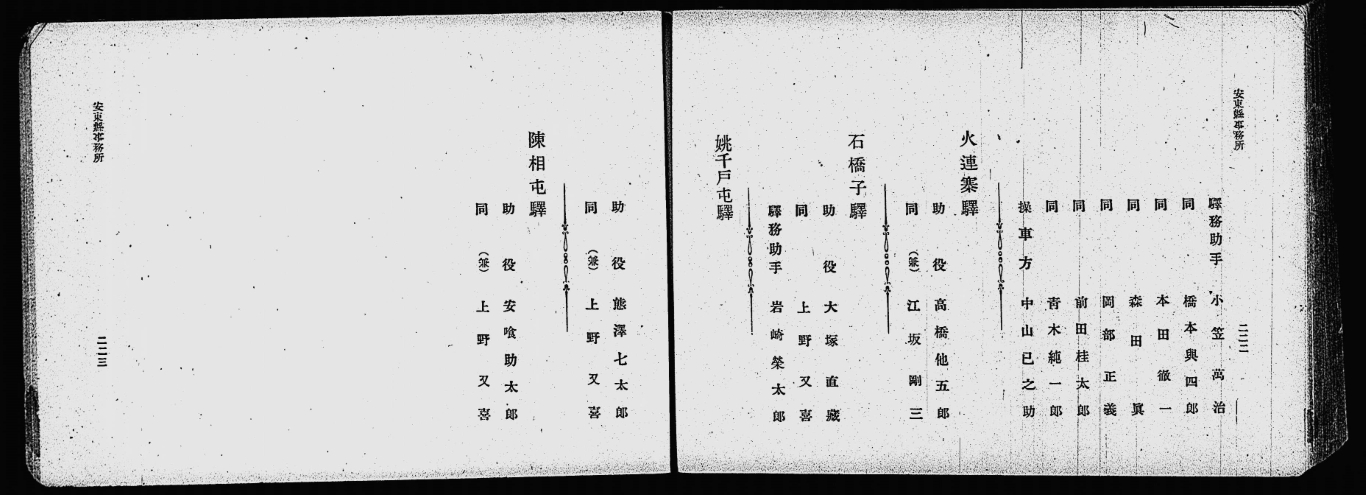 安東縣事務所
驛務助手 小笠萬治
同 橋本與四郎
同 本田徹一
同 森田眞
同 岡部正義
同 前田桂太郎
同 青木純一郎
操車方 中山已之助
火連寨驛
助役 高橋他五郎
同(兼) 江坂剛三
石橋子驛
助役 大塚直藏
同 上野又喜
驛務助手 岩崎榮太郎
姚千戸屯驛
二二二
助役 熊澤七太郎
同(兼) 上野又喜
陳相屯驛
助役 安喰助太郎
同(兼) 上野又喜
安東縣事務所
二二三